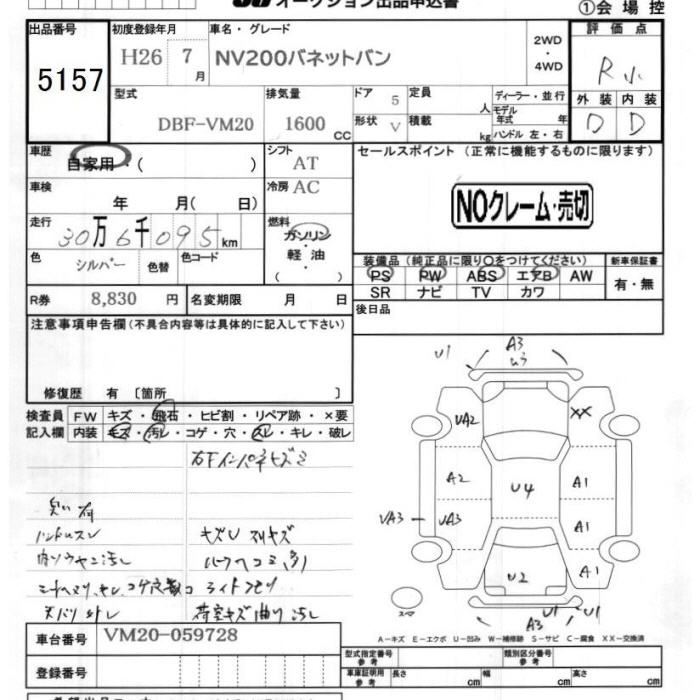 オークション出品申込書
①会場控
出品番号
5157
初度登録年月
H26 7月
車名・グレード
NV200バネットバン
2WD
・
4WD
評価点
R
型式
DBF-VM20
排気量
1600 CC
ドア 5
形状 V
定員 人
積載 kg
ディーラー・並行
モデル年式 年
ハンドル 左・右
外装 内装
D D
車歴
自家用・( )
シフト AT
車検
年 月( 日)
冷房 AC
走行
30万6千095km
燃料
ガソリン
・
軽油
( )
色 シルバー 色替 色コード
R券 8,830 円 名変期限 月 日
セールスポイント (正常に機能するものに限ります)
NOクレーム・売切
装備品 (純正品に限り〇をつけてください) 新車保証書
PS PW ABS エアB AW 有・無
SR ナビ TV カワ
後日品
注意事項申告欄 (不具合内容等は具体的に記入して下さい)
修復歴 有 〔箇所 〕
検査員記入欄
FW キズ・飛石・ヒビ割・リペア跡・×要
内装 キズ・汚レ・コゲ・穴・スレ・キレ・破レ
右Fインパネキズ
ハンドルスレ
天バリ外レ
荷室キズ曲り汚レ
U1 A3
UA2 XX
A2 U4 A1
UA3 UA3 A1
U2 A1
A3 U1 U1
A－キズ E－エクボ U－凹み W－補修跡 S－サビ C－腐食 XX－交換済
車台番号 VM20-059728
登録番号
型式指定番号 参考 類別区分番号 参考
車庫証明用 参考 長さ cm 幅 cm 高さ cm